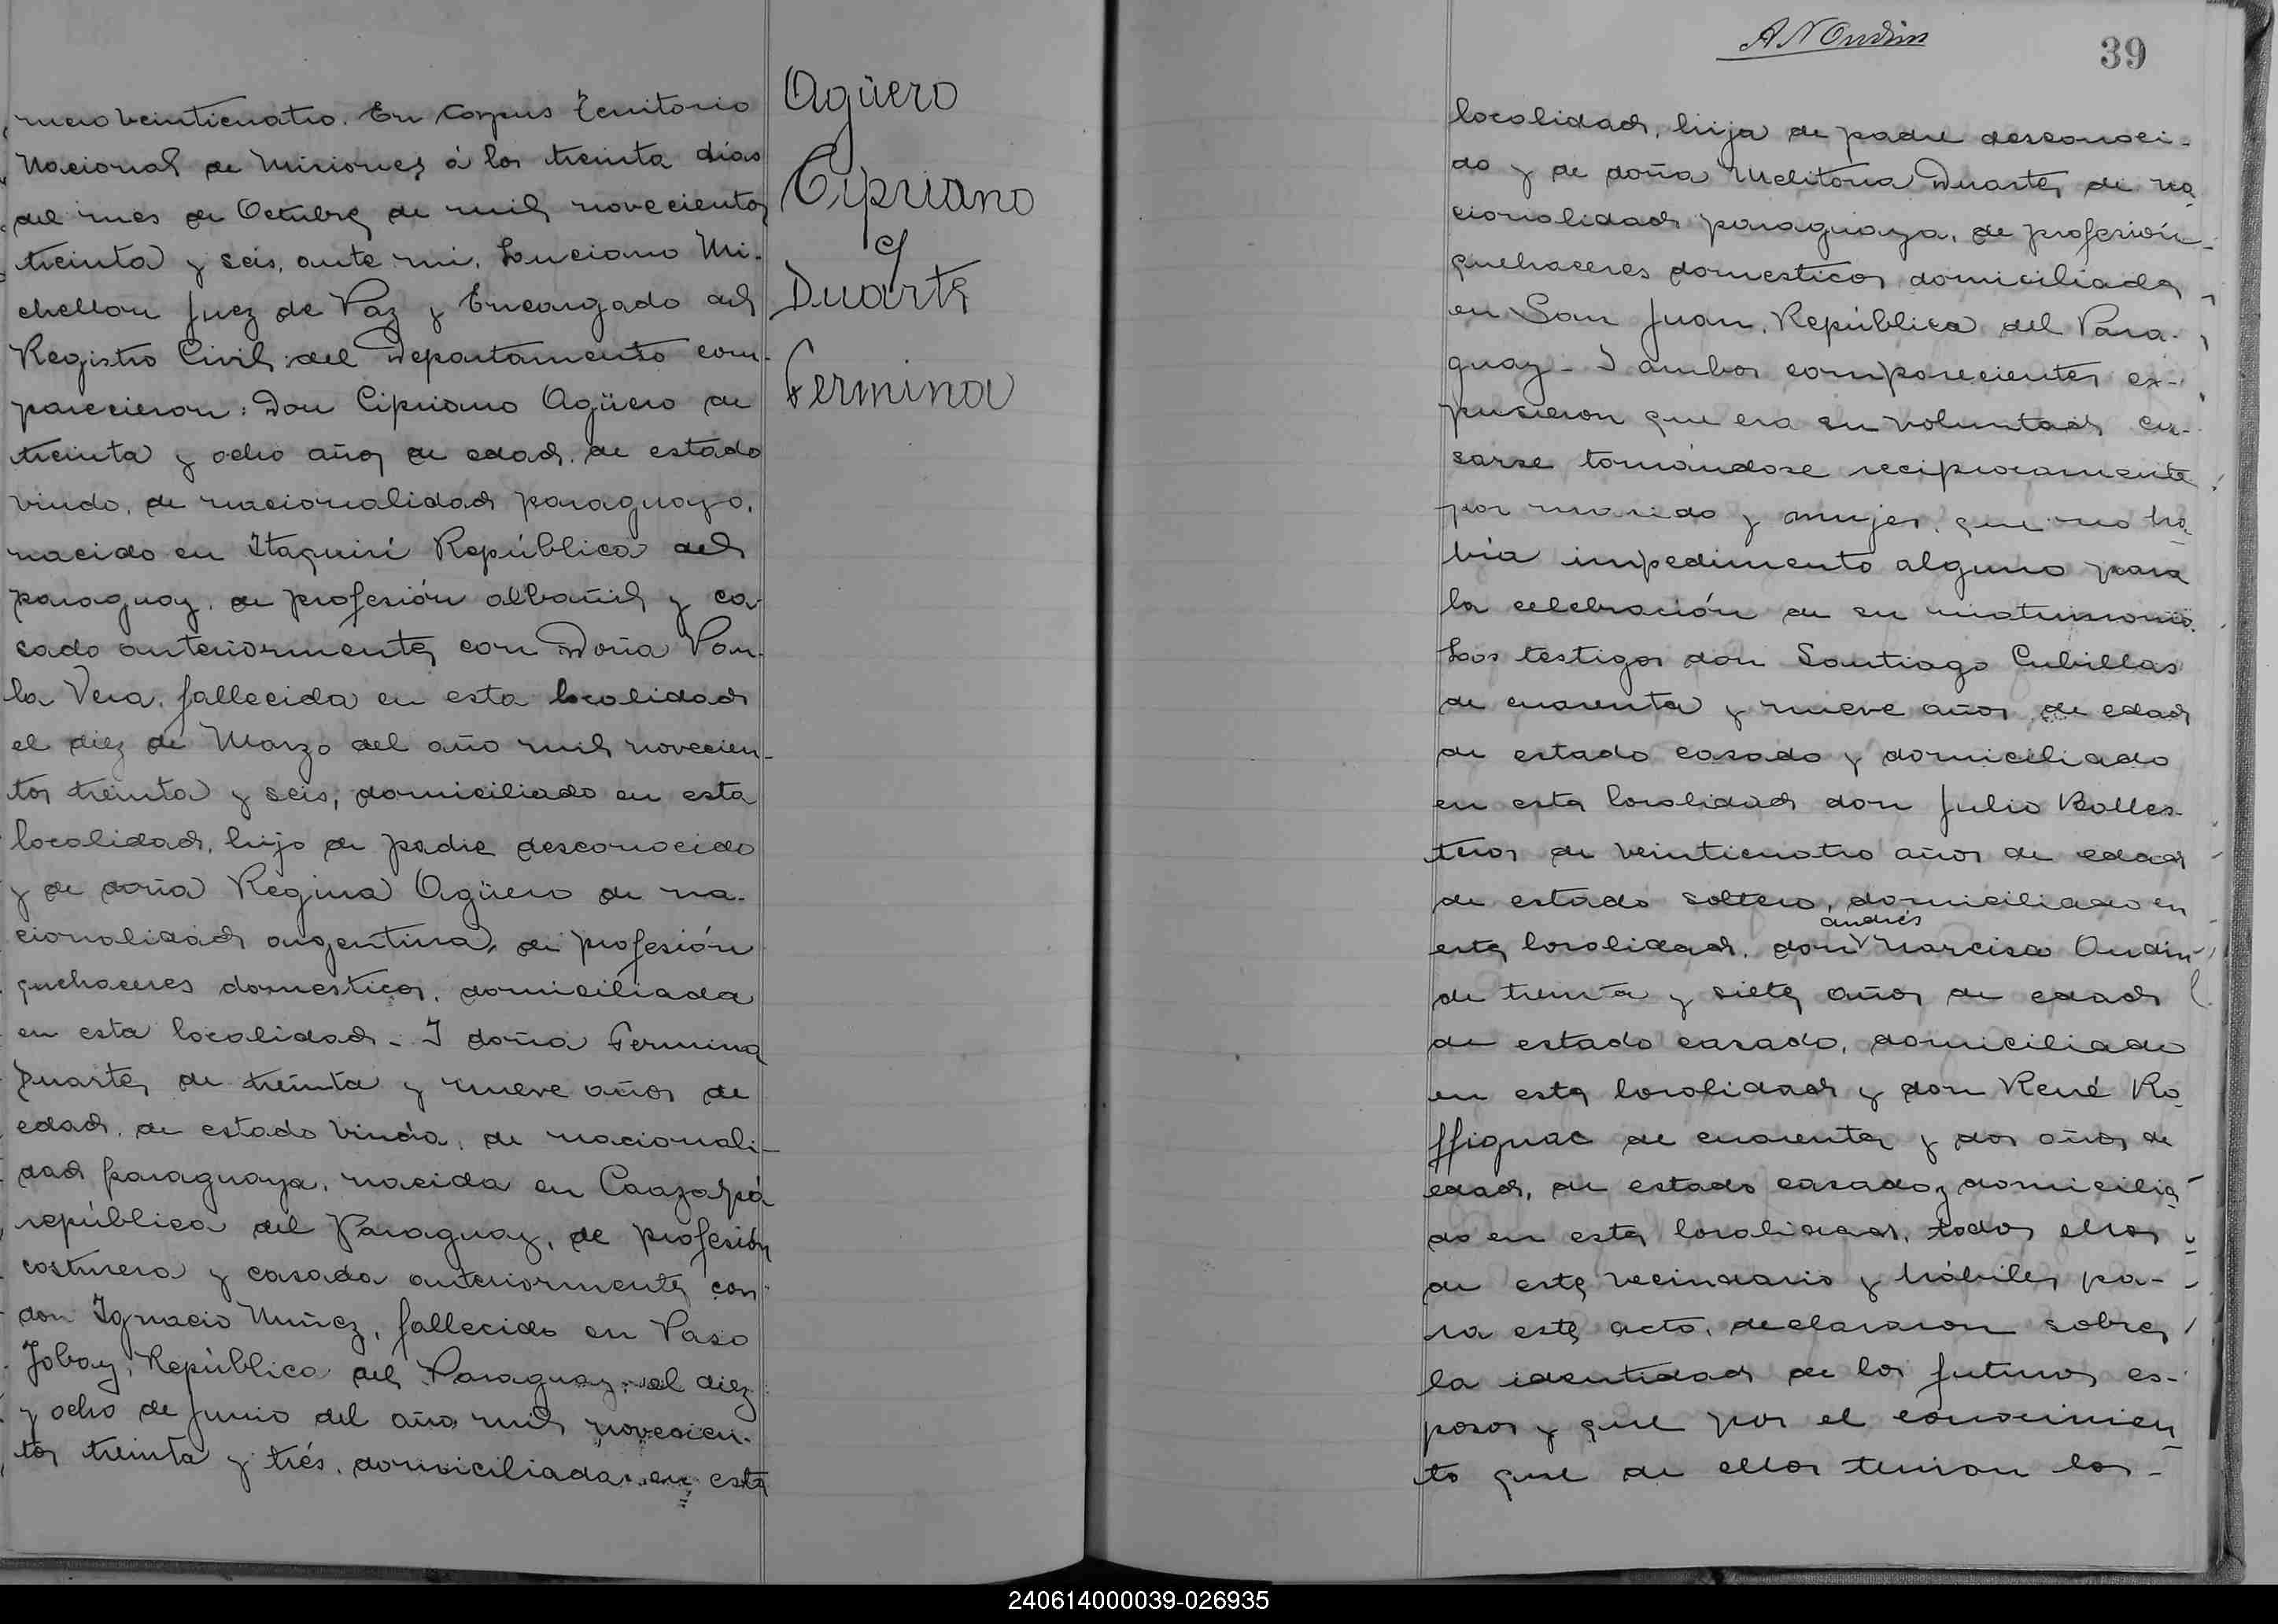 mero veinticuatro. En Corpus Territorio
Nacional de Misiones á los treinta dias
del mes de Octubre de mil novecientos
treinta y seis, ante mi, Luciano Mi-
chellon Juez de Paz y Encargado del
Registro Civil del Departamento com-
parecieron: Don Cipriano Agüero de
treinta y ocho años de edad, de estado
viudo, de nacionalidad paraguayo,
nacido en Itaquirí República del
paraguay, de profesión albañil y ca-
sado anteriormente con Doña Pau-
la Vera, fallecida en esta localidad
el diez de Marzo del año mil novecien-
tos treinta y seis, domiciliado en esta
localidad, hijo de padre desconocido
y de doña Regina Agüero de na-
cionalidad argentina, de profesión
quehaceres domesticos, domiciliada
en esta localidad - I doña Fermina
Duarte, de treinta y nueve años de
edad, de estado viuda, de nacionali-
dad paraguaya, nacida en Caazapá
república del Paraguay, de profesión
costurera y casada anteriormente con
don Ignacio Nuñez, fallecido en Paso
Jobay, República del Paraguay, el diez
y ocho de Junio del año mil novecien-
tos treinta y trés, domiciliada en esta
Agüero
Cipriano
y
Duarte
Fermina
A N Oudin
39
localidad, hija de padre desconoci-
do y de doña Melitona Duarte, de na
cionalidad paraguaya, de profesión
quehaceres domesticos domiciliada
en San Juan, República del Para-
guay - I ambos comparecientes ex-
pusieron que era su voluntad ca-
sarse tomándose reciprocamente
por marido y mujer, que no ha
bía impedimento alguno para
la celebración de su matrimonio.
Los testigos don Santiago Cubillas
de cuarenta y nueve años de edad
de estado casado y domiciliado
en esta localidad don Julio Balles-
teros de veinticuatro años de edad
de estado soltero, domiciliado en
andrés
esta localidad, don Narciso Oudin
de treinta y siete años de edad
de estado casado, domiciliado
en esta localidad y don René Ro
ffignac de cuarenta y dos años de
edad, de estado casado y domicilia
do en esta localidad, todos ellos
de este vecindario y hábiles pa-
ra este acto, declararon sobre
la identidad de los futuros es-
posos y que por el conocimien
to que de ellos tenian los -
240614000039-026935